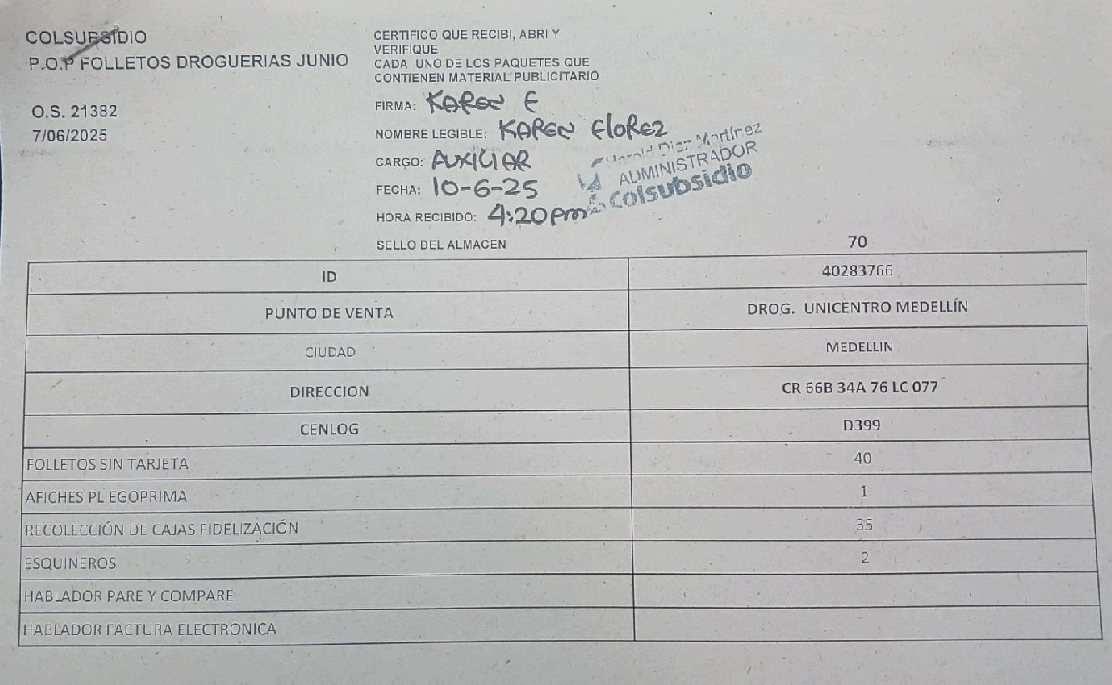 COLSUBSIDIO
P.O.P FOLLETOS DROGUERIAS JUNIO
O.S. 21382
7/06/2025
CERTIFICO QUE RECIBI, ABRI Y
VERIFIQUE
CADA UNO DE LOS PAQUETES QUE
CONTIENEN MATERIAL PUBLICITARIO
FIRMA: KAREN F
NOMBRE LEGIBLE: KAREN FloREZ
CARGO: AUXILIAR
FECHA: 10-6-25
HORA RECIBIDO: 4:20 pm
Harold Diaz Martínez
ADMINISTRADOR
Colsubsidio
SELLO DEL ALMACEN 70
ID 40283766
PUNTO DE VENTA DROG. UNICENTRO MEDELLÍN
CIUDAD MEDELLIN
DIRECCION CR 66B 34A 76 LC 077
CENLOG D399
FOLLETOS SIN TARJETA 40
AFICHES PL EGOPRIMA 1
RECOLECCIÓN DE CAJAS FIDELIZACIÓN 35
ESQUINEROS 2
HABLADOR PARE Y COMPARE
HABLADOR FACTURA ELECTRONICA